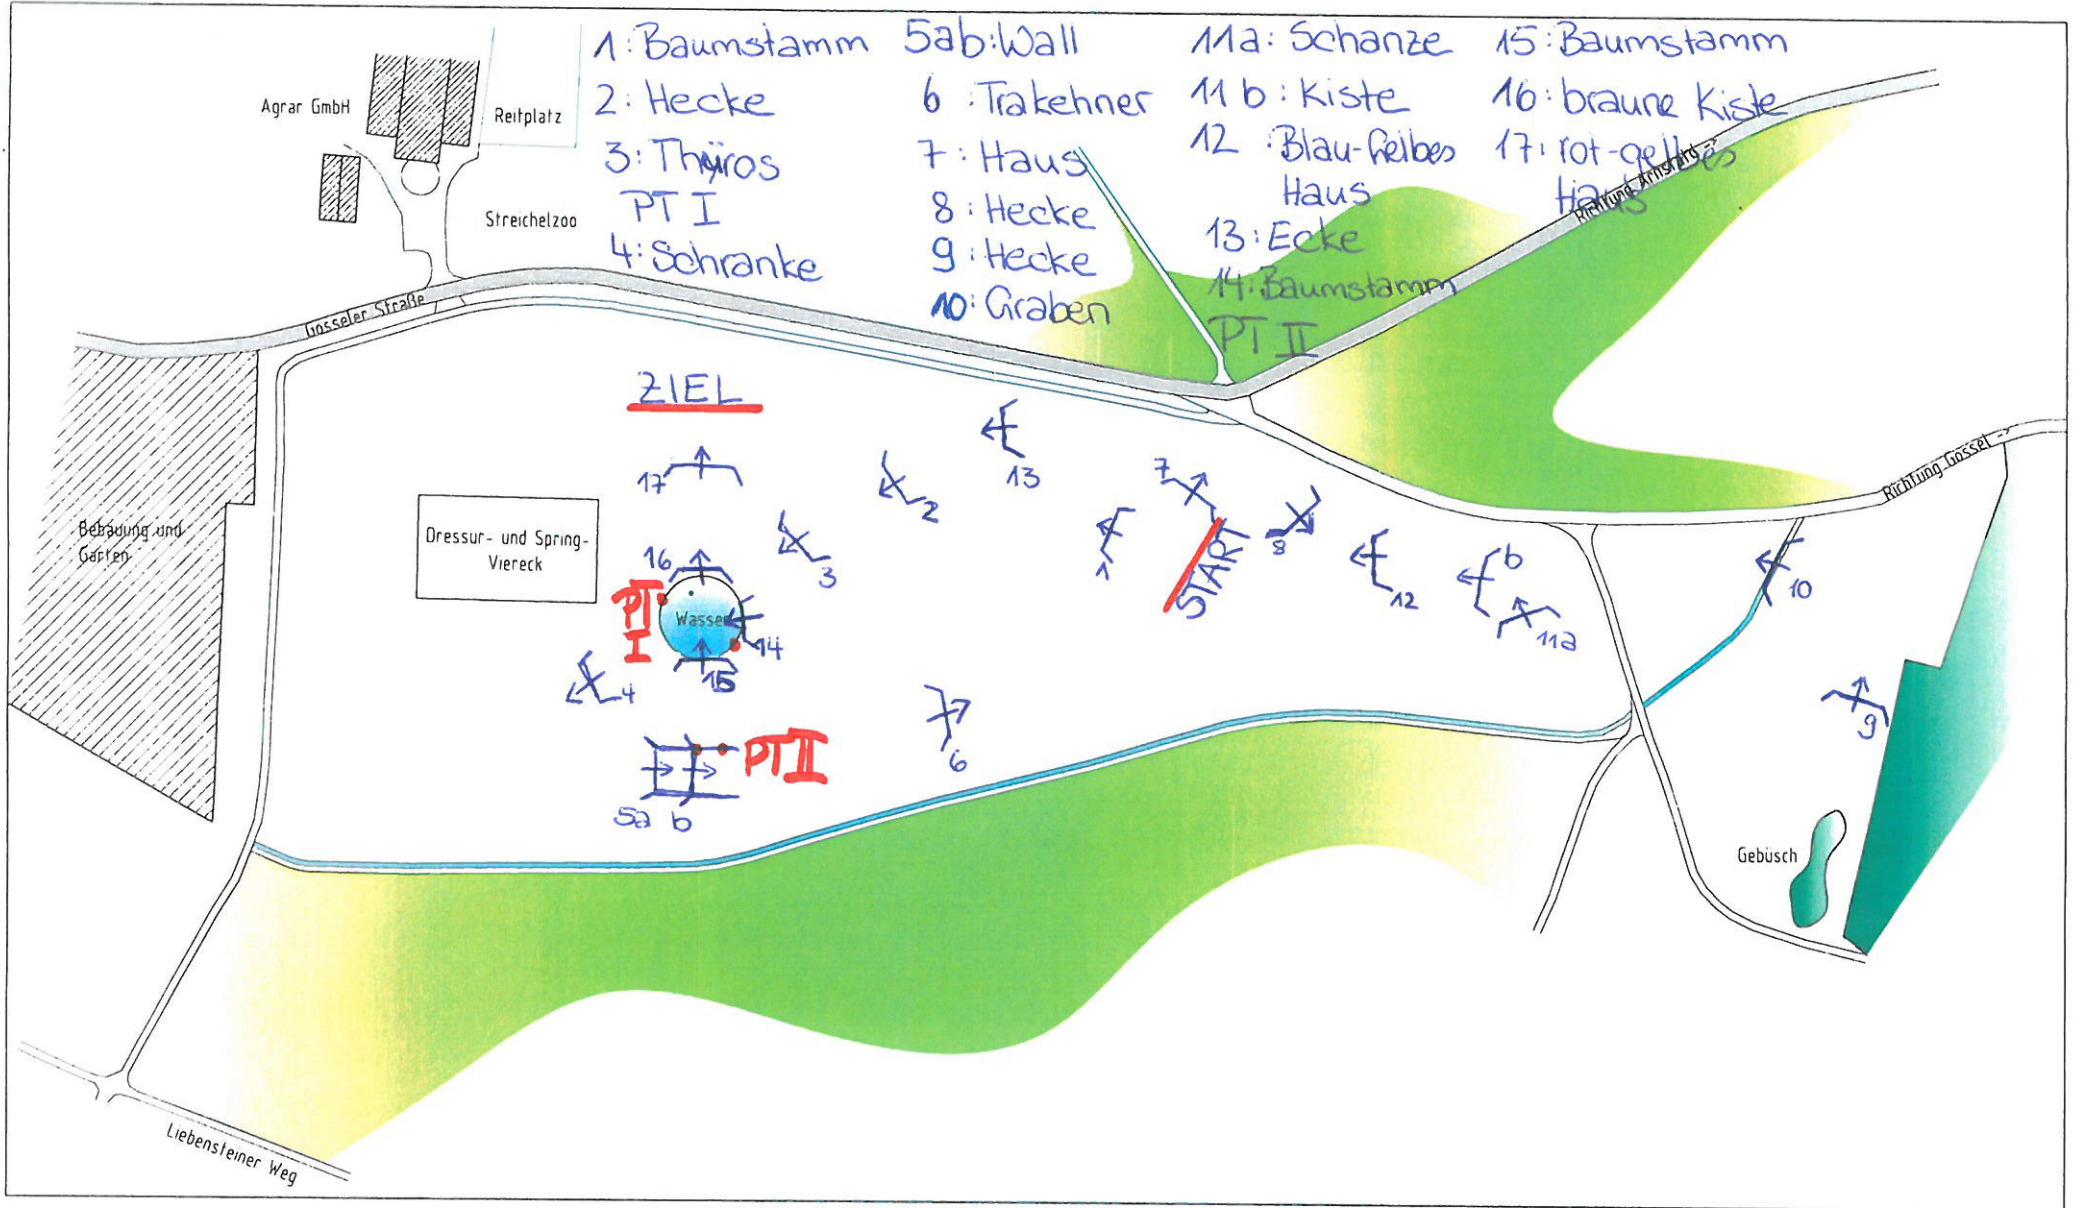 1: Baumstamm
2: Hecke
3: Thyros
PT I
4: Schranke
5ab: Wall
6: Trakehner
7: Haus
8: Hecke
9: Hecke
10: Graben
11a: Schanze
11b: Kiste
12: Blau-Gelbes
Haus
13: Ecke
14: Baumstamm
PT II
15: Baumstamm
16: braune Kiste
17: rot-gelbes
Haus
Agrar GmbH
Reitplatz
Streichelzoo
Gosseler Straße
Richtung Arnstadt ->
Richtung Gossel ->
ZIEL
17
2
13
7
START
8
1
12
b
11a
10
9
Bebauung und
Garten
Dressur- und Spring-
Viereck
3
16
PT
I
Wasser
14
15
4
PT II
5a b
6
Gebüsch
Liebensteiner Weg